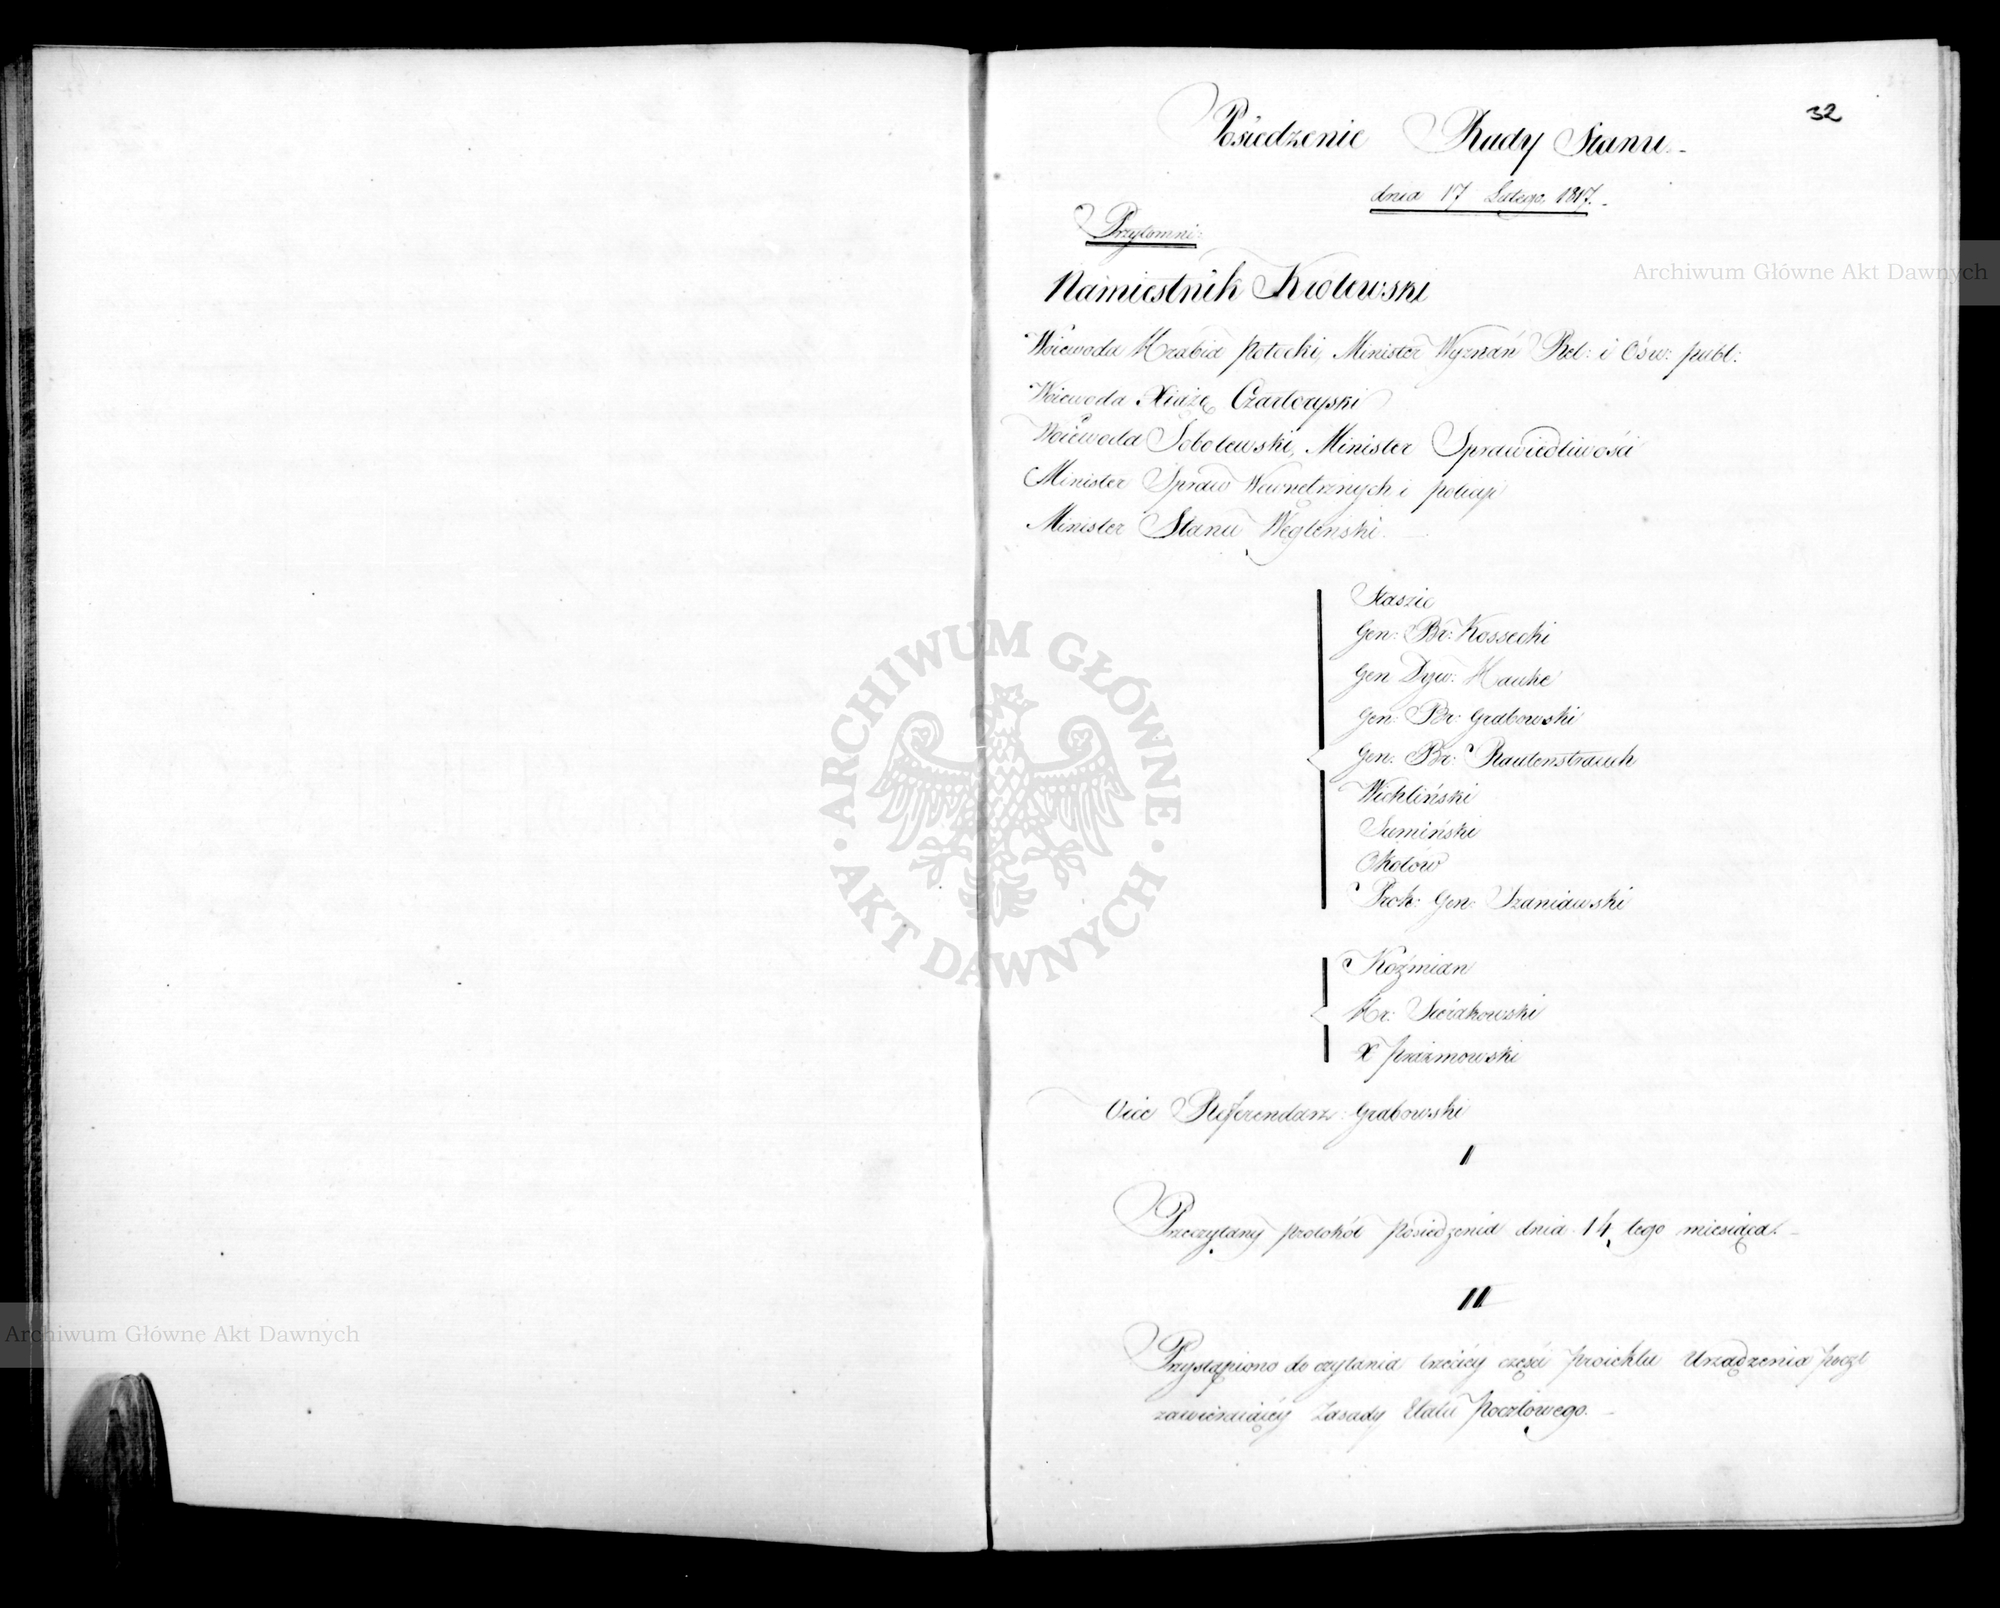 32
Posiedzenie Rady Stanu.
dnia 17 Lutego 1817.
Przytomni:
Namiestnik Krolewski
Woiewoda Hrabia Potocki, Minister Wyznań Rel: i Ośw: publ:
Woiewoda Xiąże Czartoryski
Woiewoda Sobolewski, Minister Sprawiedliwości
Minister Spraw Wewnętrznych i policyi
Minister Stanu Węgleński.
Staszic
Gen: Br: Kossecki
Gen Dyw: Hauke
Gen: Br: Grabowski
Gen: Br: Rautenstrauch
Wichliński
Sumiński
Okołów
Prok: Gen: Szaniawski
Koźmian
Hr: Sierakowski
X Prażmowski
Vice Referendarz: Grabowski
I
Przeczytany protokół Posiedzenia dnia 14 tego miesiąca.
II
Przystąpiono do czytania trzeciey części proiektu Urządzenia poczt
zawieraiącey Zasady Etatu Pocztowego.
Archiwum Główne Akt Dawnych
ARCHIWUM GŁÓWNE AKT DAWNYCH
Archiwum Główne Akt Dawnych